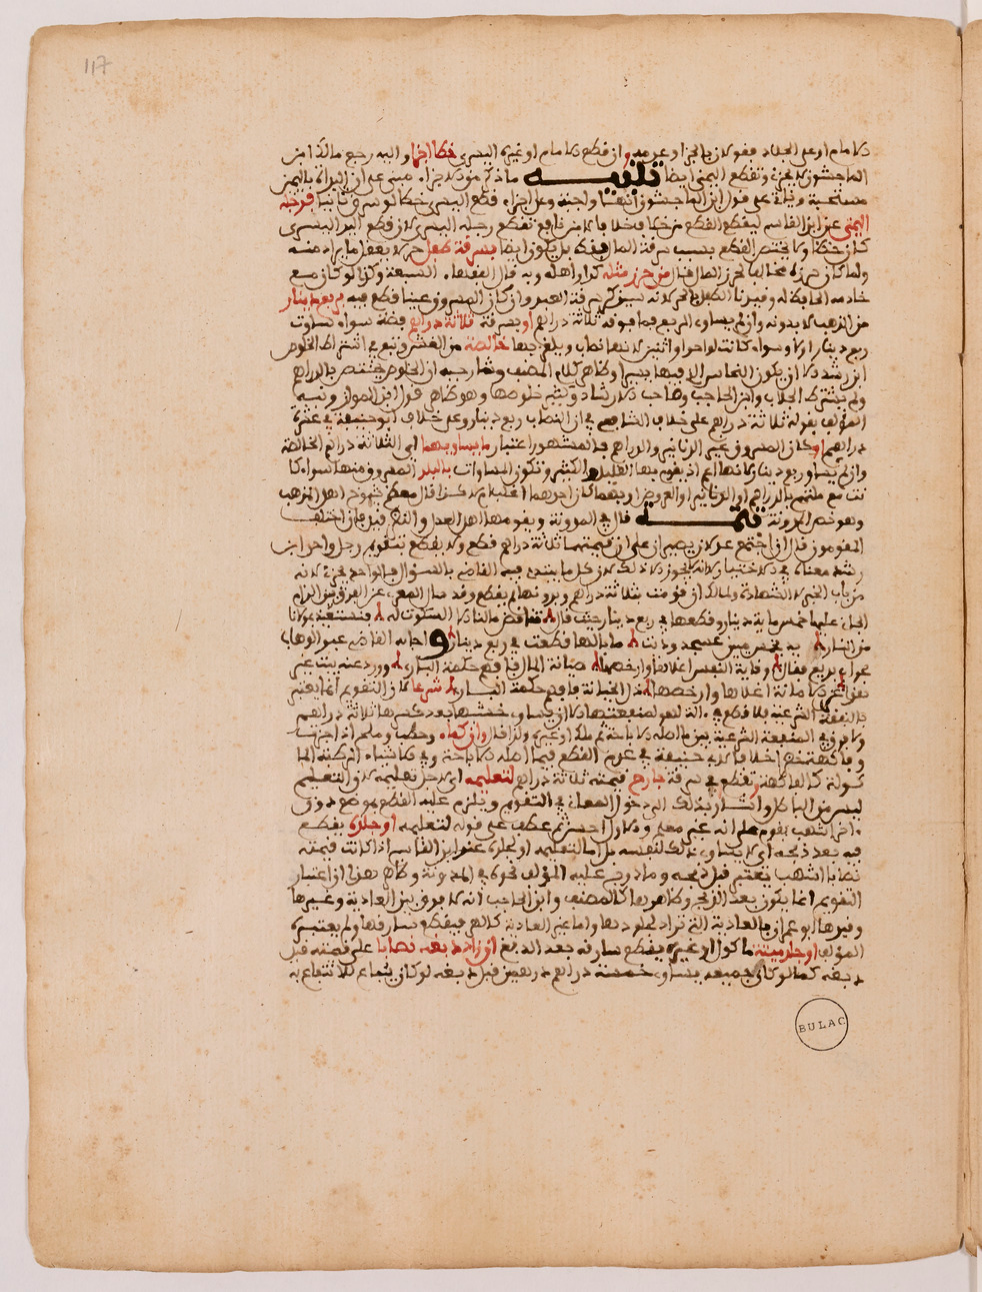 117
الامام او على الجلاد فقولان بالجزا وعدمه وان قطع الامام او غيره اليسرى خطا اجزا واليه رجع مالك ابن
الماجشون لا يجزي وتقطع اليمنى ايضا تنبيه ما ذكره من الاجزاء مبني على ان البداءة باليمين
مستحبة على قول ابن الماجشون قطع اليسرى خطا لو سرق ثانيا فرجله
اليمنى عند ابن القاسم ليقطع القطع من خلاف ابن نافع تقطع رجله اليسرى لان قطع اليد اليسرى
كان خطا ولا يختص القطع بسبب سرقة المال فقط بل يكون ايضا بسرقة طفل حر لا يعقل ما يراد منه
ولما كان حرزه مخالفا لحرز المال قال من حرز مثله كدار اهله وبه قال الفقهاء السبعة وكذا لو كان مع
خادمه الحافظ له وقيدنا الطفل بالحر لانه سيذكر سرقة العبد وان كان المسروق عينا قطع فيه بربع دينار
من الذهب لا بدونه وان لم يساو الربع فما فوقه ثلاثة دراهم او بسرقة ثلاثة دراهم فضة سواء ساوت
ربع دينار او لا وسواء كانت لواحد او اثنين لانها نصاب ويلغز بها خالصة من الغش وتبع في اشتراط الخلوص
ابن رشد الا ان يكون النحاس الذي فيها يسيرا وظاهر كلام المصنف وشارحيه ان الخلوص يختص بالدراهم
ولم يشترط الجلاب وابن الحاجب وصاحب الارشاد وغيرهم خلوصها وهو ظاهر قول ابن المواز ونبه
المؤلف بقوله ثلاثة دراهم على خلاف الشافعي في ان النصاب ربع دينار وعلى خلاف ابو حنيفة في عشرة
دراهم او كان المسروق غير الدنانير والدراهم فالمشهور اعتبار ما يساويهما اي الثلاثة دراهم الخالصة
وان لم يساو ربع دينار لانها اعم اذ يقوم بها القليل والكثير وتكون المساوات بالبلد المسروق منها سواء كا
نت مع ملتهم بالدراهم او الدنانير او العروض او بهما كان احدهما اغلب ام لا هكذا قال معظم شيوخ اهل المذهب
وهو نص المدونة تتمة قال في المدونة ويقومها اهل العدل والنظر قيل فان اختلف
المقومون قال ان اجتمع عدلان بصيران على ان قيمتها ثلاثة دراهم قطع ولا يقطع بتقويم رجل واحد ابن
رشد معناه في الاختيار لانه لا يجوز الا ذلك لان كل ما يبتدئ فيه القاضي بالسؤال فالواحد يجزي لانه
من باب الخبر لا الشهادة ولمالك ان قومت بثلاثة دراهم وبدونها لم يقطع وقد سال المعري عن الفرق بين الزام
الجاني عليها خمس ماية دينار وقطعها في ربع دينار حيث قال تناقض ما لنا الا السكوت له ونستعيذ بمولانا
من النار يد بخمس مئين عسجد وديت ما بالها قطعت في ربع دينار واجابه القاضي عبد الوهاب
بجواب بديع فقال وقاية النفس اغلاها وارخصها صيانة المال فافهم حكمة الباري وورد عنه بيت غير
هذا عز الامانة اغلاها وارخصها ذل الخيانة فافهم حكمة الباري شرعا لان التقويم انما يعتبر
بالمنفعة الشرعية فلا قطع في الة لهو لمنفعتها الا ان يساوي خشبها بعد كسرها ثلاثة دراهم
ولا فرق في المنفعة الشرعية بين ما اصله الاباحة ثم ملك او غيره ولذا قال وان كماء وحطب وملح اذا احرزت
وفاكهة خضرا خلافا لابي حنيفة في عدم القطع فيما اصله الاباحة وفي الاشياء الرطبة الما
كولة كالفاكهة وتقطع في سرقة جارح قيمته ثلاثة دراهم لتعليمه اي لاجل تعليمه لان التعليم
ليس من الباطل واشار بذلك الى دخول المعلم في التقويم ويلزم عليه القطع بموضع دون
اخر اشهب يقوم على انه غير معلم والاول احسن ثم عطف على قوله لتعليمه او جلده بقطع
فيه بعد ذبحه اي لا يساوي ذلك لنفسه بل اما لتعليمه او لجلده عند ابن القاسم اذا كانت قيمته
نصابا اشهب تعتبر قبل ذبحه وما درج عليه المؤلف نحوه في المدونة وظاهر هذا ان اعتبار
التقويم انما يكون بعد الذبح وظاهرها كالمصنف وابن الحاجب انه لا فرق بين العادية وغيرها
وقيدها ابو عمران بالعادية التي تراد لجلودها واما غير العادية كالهر فيقطع سارقها ولم يعتبره
المؤلف او جلد ميتة ماكول او غيره يقطع سارقه بعد الدبغ ان زاد دبغه نصابا على قيمته قبل
دبغه كما لو كان جميعه يساوي خمسة دراهم درهمين قبل دبغه لو كان يباع للانتفاع به
BULAC